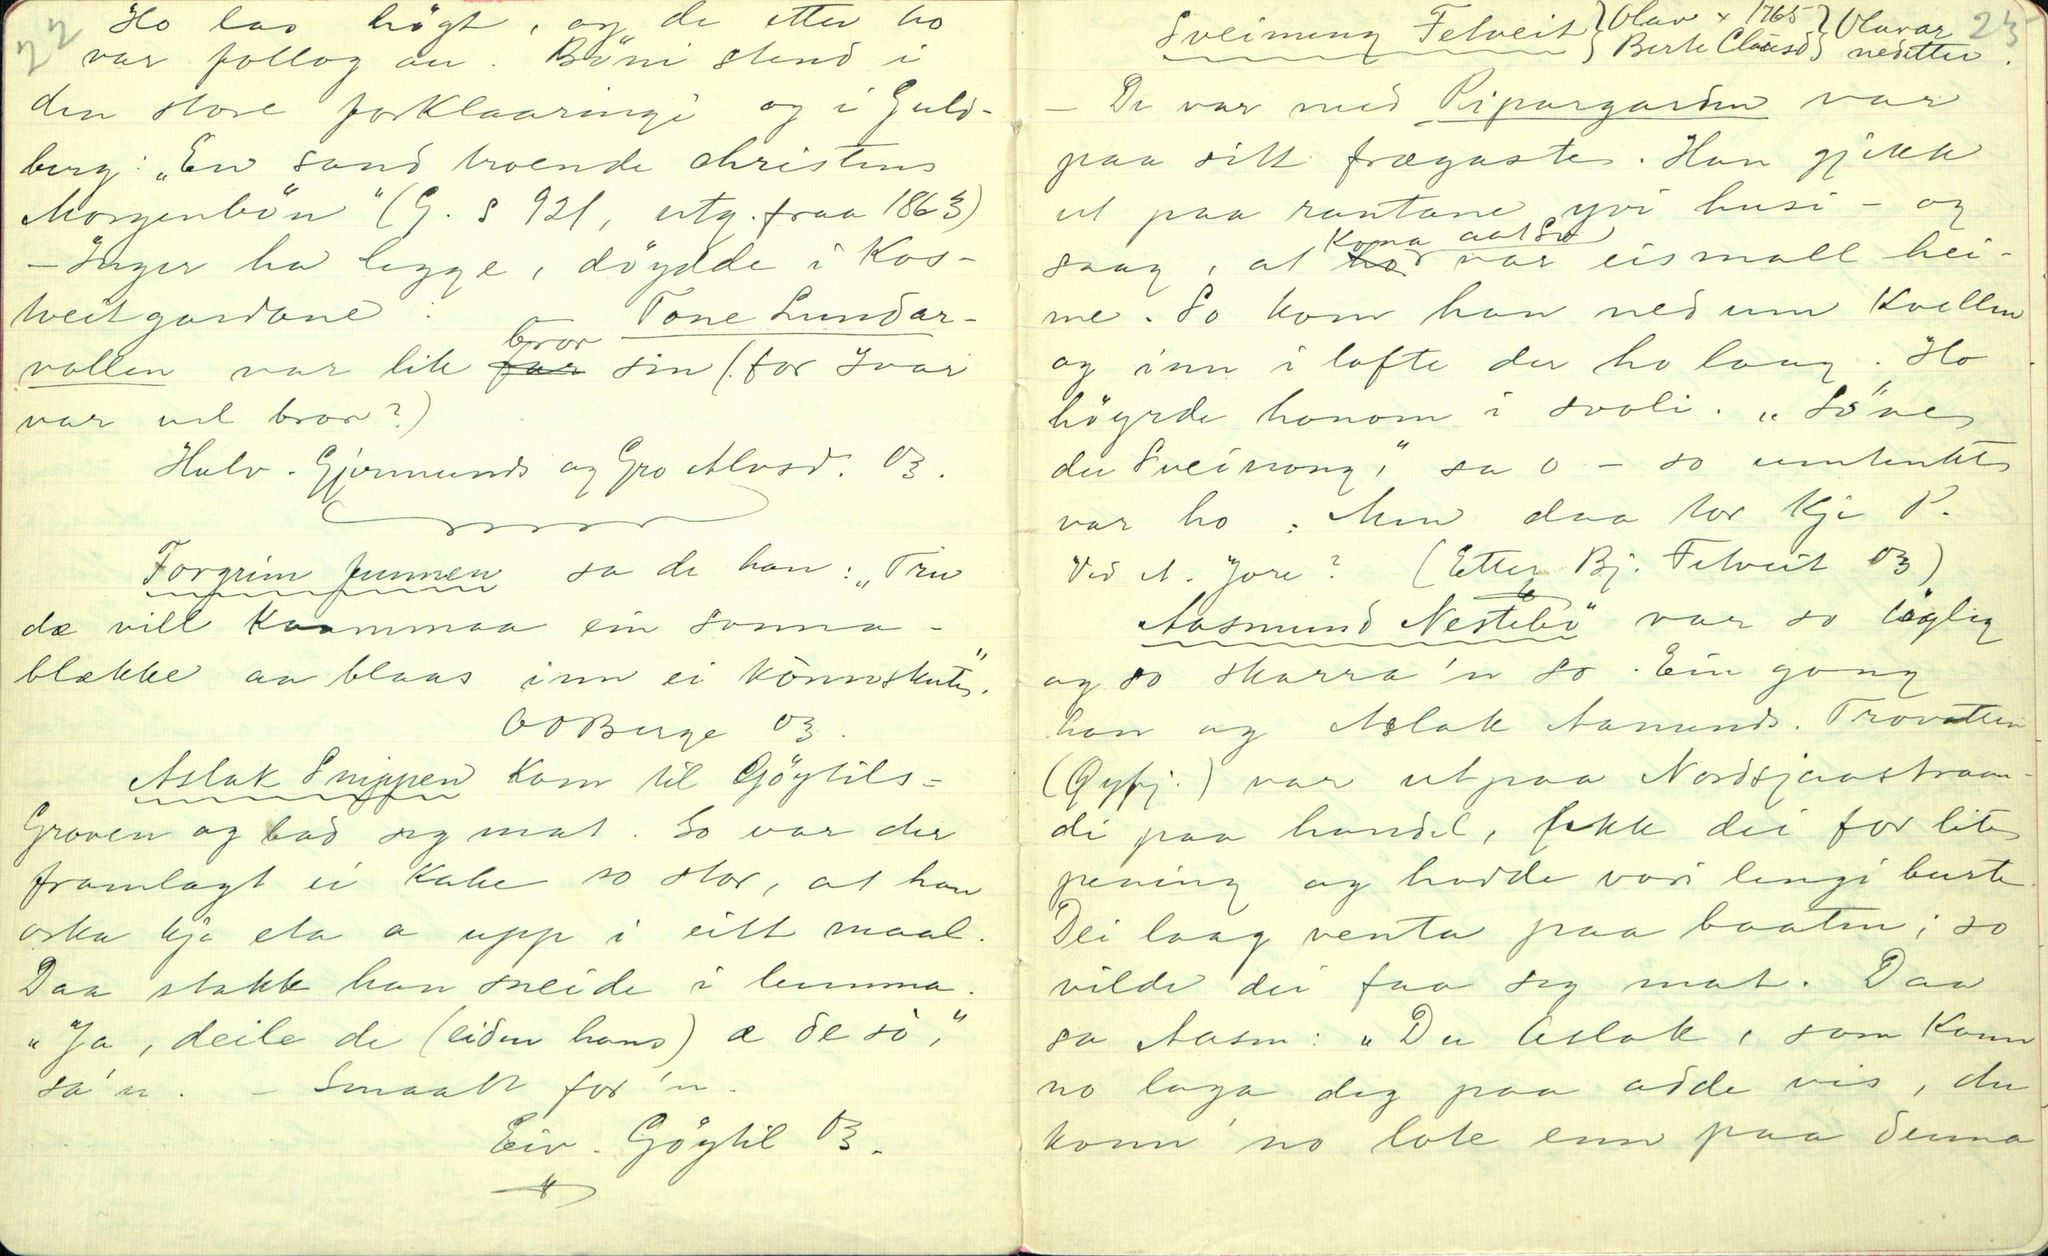 22
Ho las högt, og de etter ho
var follog au. Böni stend i
den store forklaaringi og i Guld-
berg: „En sand troende christens
Morgenbön" (G. s 921, utg. fraa 1863)
- Inger ha legge, döydde i Kos-
tveitgardane. - Tone Lundar-
vollen var lik far bror sin (for Ivar
var vel bror?)
Halv. Gjermunds og Gro Alvsd. 03.
Torgrim funnen sa de han: „Tru
dæ vill kaammaa ein sonna-
blække aa blaas inn ei könnskute".
OOBerge 03.
Aslak Snippen kom til Göytils-
Groven og bad seg mat. So var der
framlagt ei kake so stor, at han
orka kje eta a upp i eitt maal.
Daa stakk han sneide i lumma.
„Ja, deile de (eiden hans) æ de sò,"
sa'n. - Smaatt for'n.
Eiv. Göytil 03.
23
Sveinung Fetveit } Olav x 1765 } Olavar
Berte Clausd } nedetter.
- De var med Ripargarden var
paa sitt frægaste. Han gjekk
ut paa rantane yvi husi - og
saag, at ho Kona aat So var eismall hei-
me. So kom han ned um kvellen
og inn i lofte der ho laag. Ho
höyrde honom i svoli. „Söve
du Sveinong," sa o - so umtenkt
var ho. Men daa tor kje P.
Ved A. Jore? (Etter Bj. Fetveit 03)
Aasmund Nestebö var so löglig
og so skarra'n so. Ein gong
han og Aslak Aamunds. Trovatten
var ut paa Nordsjaastraan-
di paa handel, fekk dei for lite
pening og hadde vori lengi burte.
Dei laag venta paa baaten; so
vilde dei faa seg mat. Daa
sa Aasm: „Du Aslak, som kann
no laga deg paa adde vis, du
konn' no lote enn paa denna